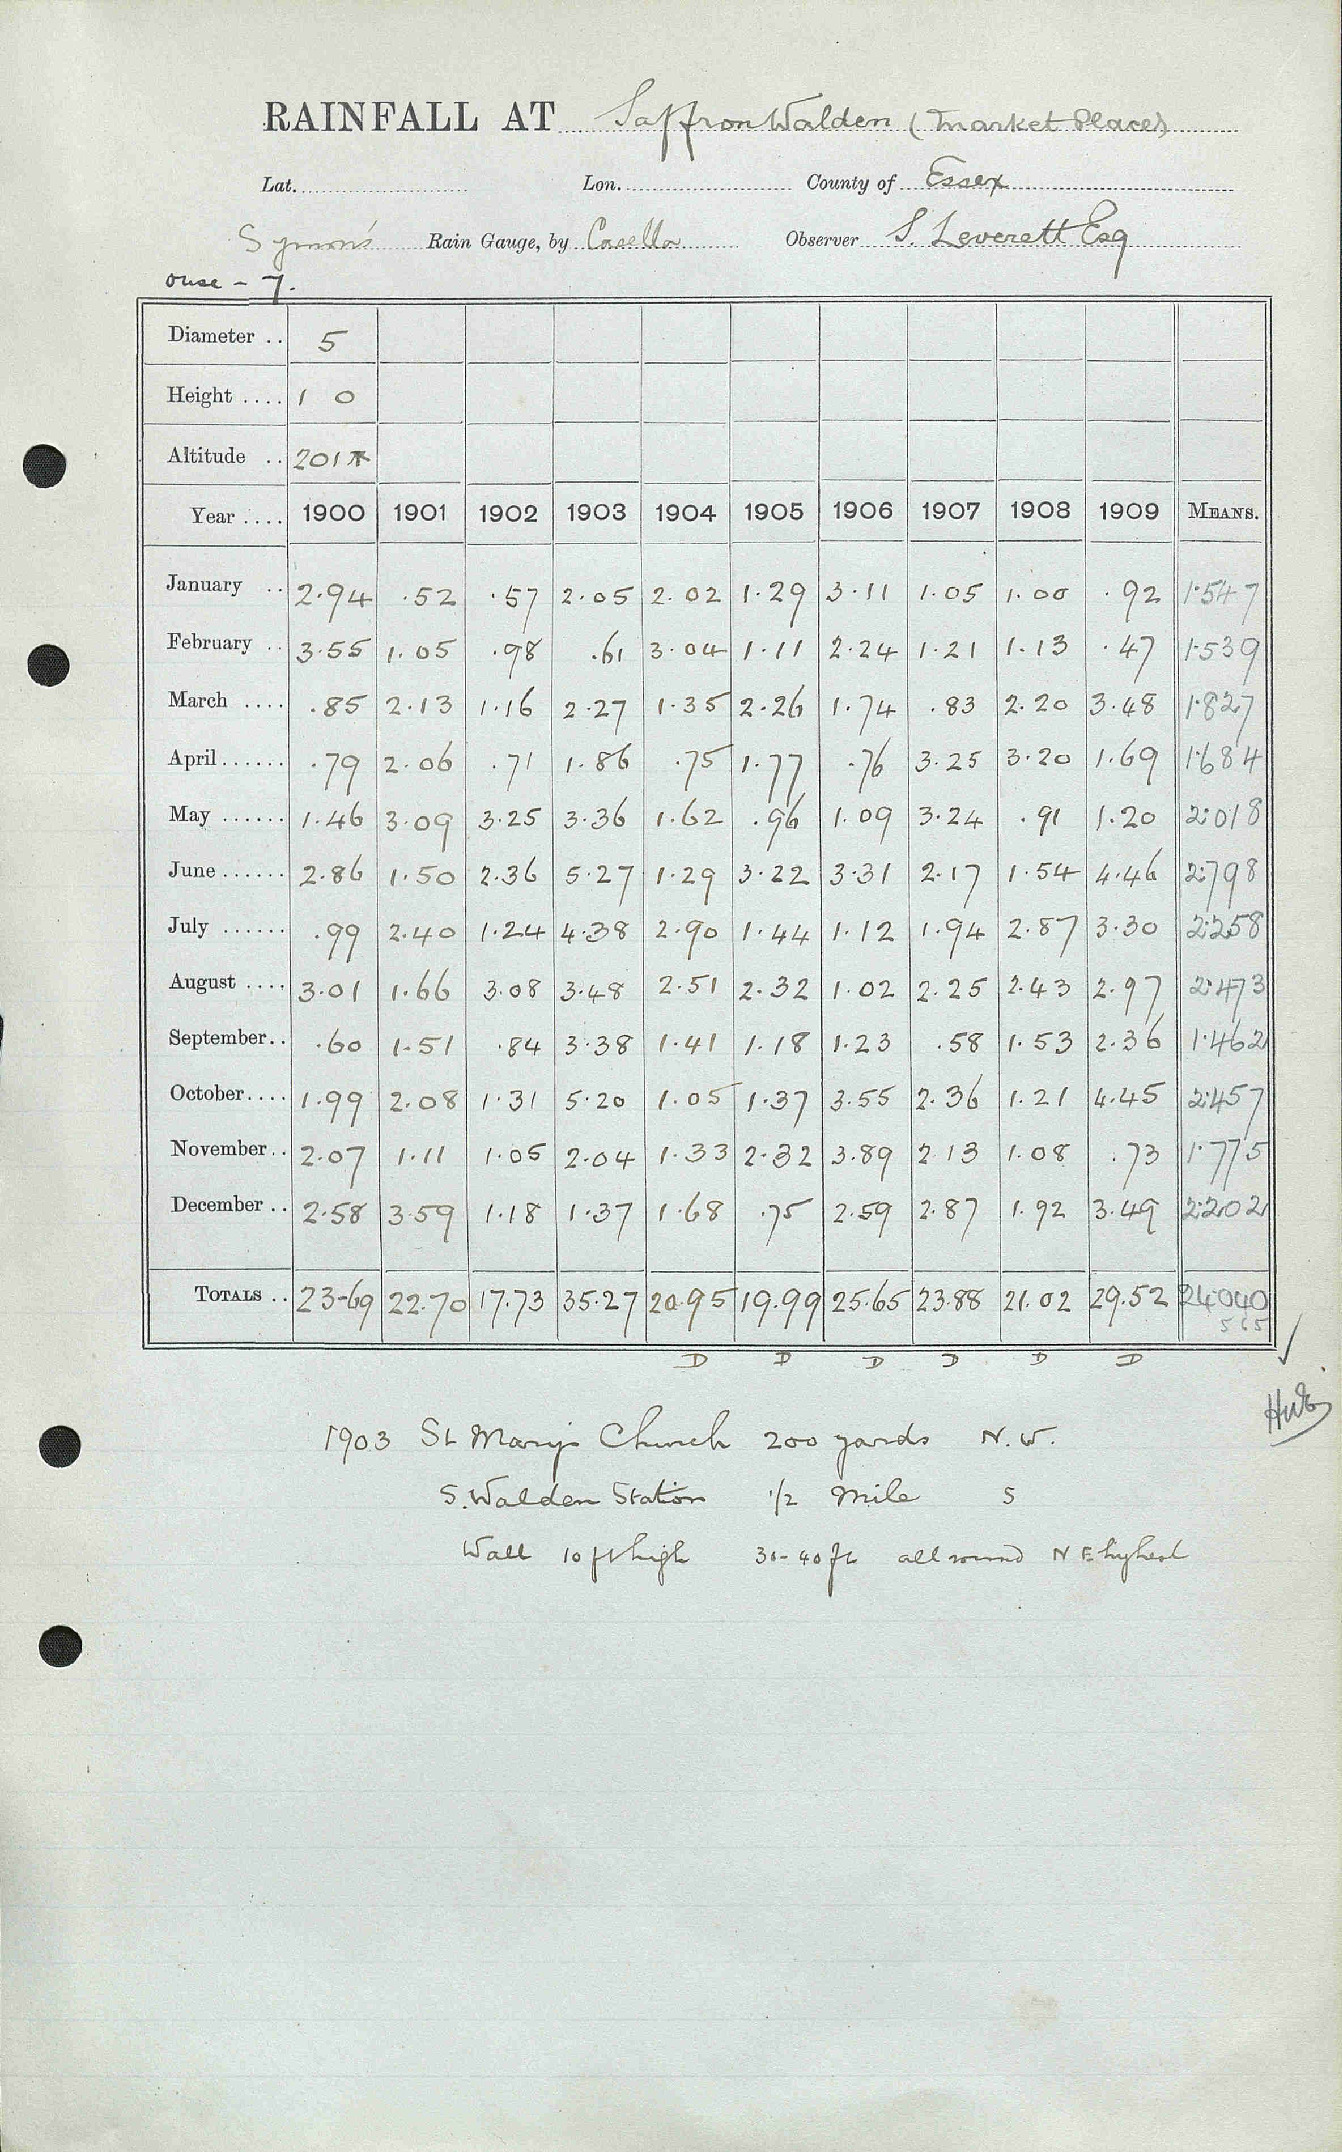 RAINFALL AT Saffron Walden (Market Place)
Lat. Lon. County of Essex
Symon's Rain Gauge, by Casella Observer S. Leverett Esq
ouse - 7.
Diameter .. 5
Height .... 1 0
Altitude .. 201
Year .... 1900 1901 1902 1903 1904 1905 1906 1907 1908 1909 MEANS.
January .. 2.94 .52 .57 2.05 2.02 1.29 3.11 1.05 1.00 .92 1.547
February .. 3.55 1.05 .98 .61 3.04 1.11 2.24 1.21 1.13 .47 1.539
March .... .85 2.13 1.16 2.27 1.35 2.26 1.74 .83 2.20 3.48 1.827
April ...... .79 2.06 .71 1.86 .75 1.77 .76 3.25 3.20 1.69 1.684
May ...... 1.46 3.09 3.25 3.36 1.62 .96 1.09 3.24 .91 1.20 2.018
June ...... 2.86 1.50 2.36 5.27 1.29 3.22 3.31 2.17 1.54 4.46 2.798
July ...... .99 2.40 1.24 4.38 2.90 1.44 1.12 1.94 2.87 3.30 2.258
August .... 3.01 1.66 3.08 3.48 2.51 2.32 1.02 2.25 2.43 2.97 2.473
September .. .60 1.51 .84 3.38 1.41 1.18 1.23 .58 1.53 2.36 1.462
October .... 1.99 2.08 1.31 5.20 1.05 1.37 3.55 2.36 1.21 4.45 2.457
November .. 2.07 1.11 1.05 2.04 1.33 2.32 3.89 2.13 1.08 .73 1.775
December .. 2.58 3.59 1.18 1.37 1.68 .75 2.59 2.87 1.92 3.49 2.202
TOTALS .. 23.69 22.70 17.73 35.27 20.95 19.99 25.65 23.88 21.02 29.52 24.040
565
D D D D D D
1903 St Mary's Church 200 yards N.W.
S. Walden Station 1/2 Mile S
Wall 10 ft high 30-40 ft all round N E highest